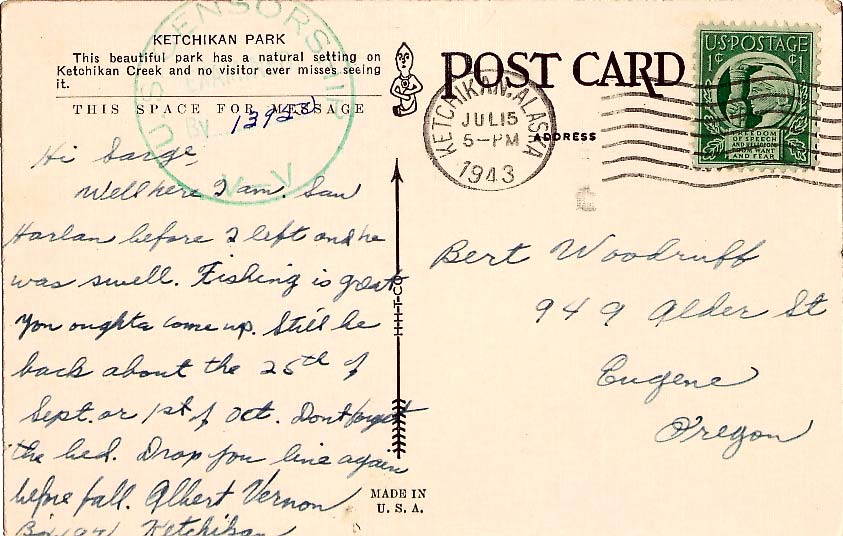 KETCHIKAN PARK
This beautiful park has a natural setting on
Ketchikan Creek and no visitor ever misses seeing
it.
THIS SPACE FOR MESSAGE
U.S. CENSORSHIP
By 13923
V-V
Hi Sarge
Well here I am. Saw
Harlan before I left and he
was swell. Fishing is great
you oughta come up. Still be
back about the 25th of
Sept. or 1st of Oct. Dont forget
the bed. Drop you line again
before fall. Albert Vernon
Ketchikan
H-H-T-CO.
MADE IN
U. S. A.
POST CARD
ADDRESS
KETCHIKAN, ALASKA
JUL 15
5-PM
1943
U.S. POSTAGE
1¢ ¢1
FREEDOM
OF SPEECH
AND RELIGION
FROM WANT
AND FEAR
Bert Woodruff
949 Alder St
Eugene
Oregon